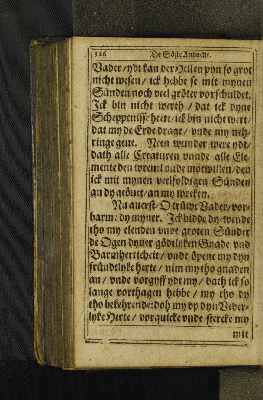 326 De Söste Andacht.
Vader / ydt kan der Hellen pyn so grot
nicht wesen / ick hebbe se mit mynen
Sünden noch veel gröter vorschuldet.
Ick bin nicht werth / dat ick dyne
Scheppenisse hete: ick bin nicht wert /
dat my de Erde drage / vnde my neh-
ringe geue. Neen wunder were ydt /
dath alle Creaturen vnnde alle Ele-
mente den wrevel vnde motwillen / den
ick mit mynen veelfoldigen Sünden
an dy geöuet / an my wreken.
Nu auerst O trüwe Vader / vor-
barme dy myner. Ick bidde dy / wende
tho my elenden vnde groten Sünder
de Ogen dyner gödtlyken Gnade vnd
Barmherticheit / vnde öpene my dyn
fründtlyke herte / nim my tho gnaden
an / vnde vorgyff ydt my / dath ick so
lange vorthagen hebbe / my tho dy
tho bekehrende: doh my vp dyn Veder-
lyke Herte / vorquicke vnde stercke my
mit